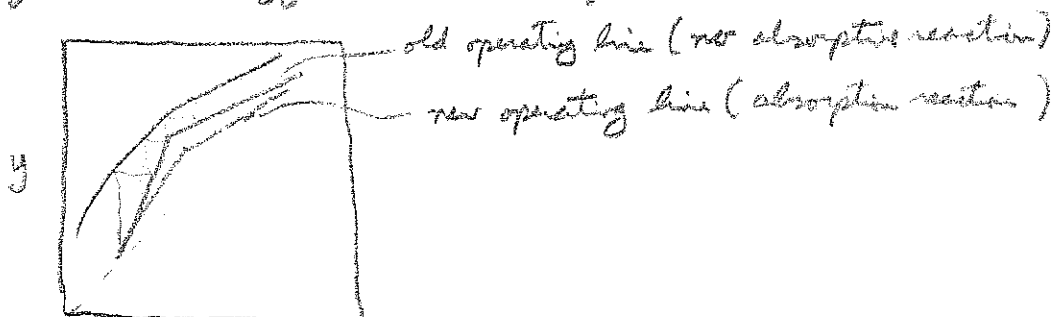 old operating line (no absorptive reaction)
new operating line (absorption reaction)
y